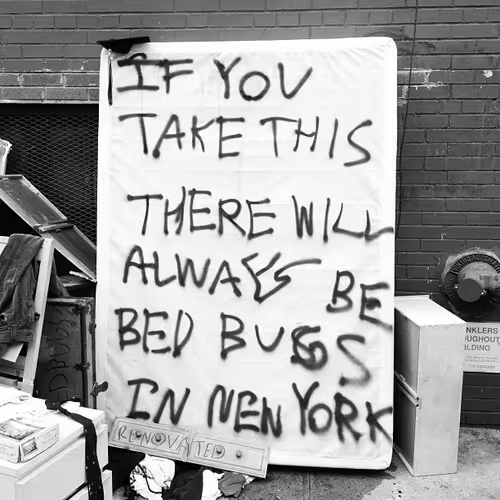 IF YOU
TAKE THIS
THERE WILL
ALWAYS
BE
BED BUGS
IN NEW YORK
RENOVATED
NKLERS
OUGHOUT
ILDING